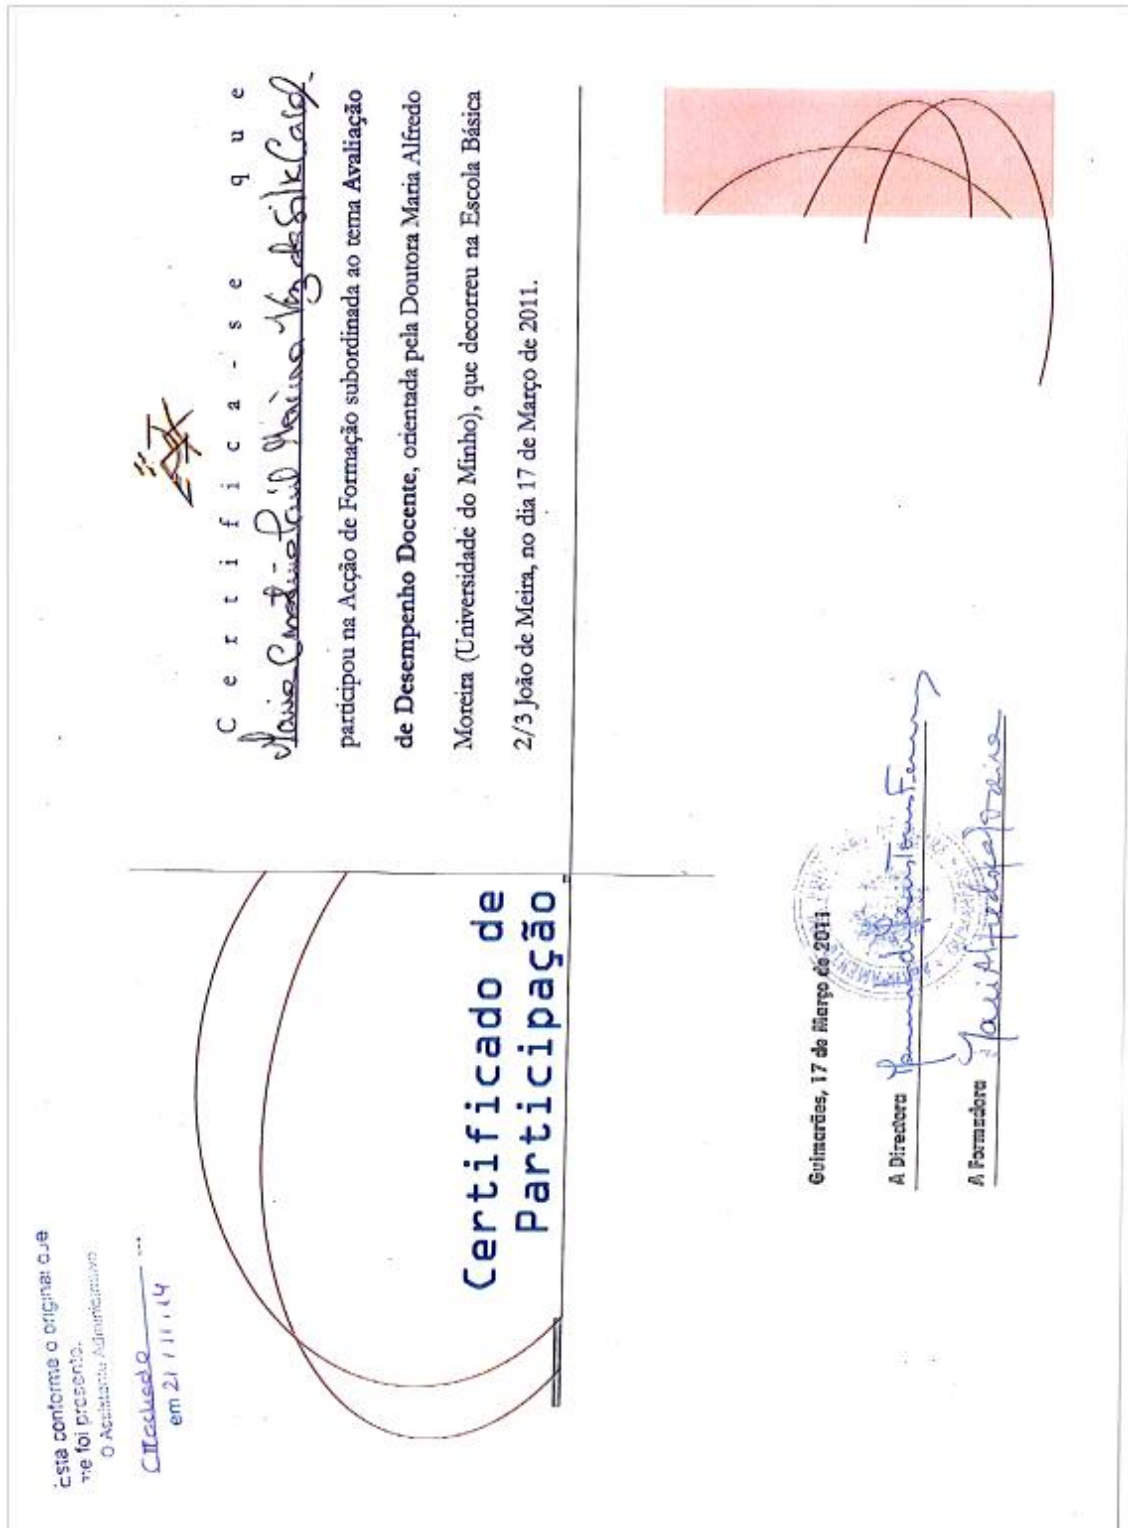 Está conforme o original que
me foi presente.
O Assistente Administrativo
CMachado
em 21/11/14
Certificado de
Participação
Certifica-se que
Maria
participou na Acção de Formação subordinada ao tema Avaliação
de Desempenho Docente, orientada pela Doutora Maria Alfredo
Moreira (Universidade do Minho), que decorreu na Escola Básica
2/3 João de Meira, no dia 17 de Março de 2011.
Guimarães, 17 de Março de 2011
A Directora
A Formadora Maria Alfredo Moreira